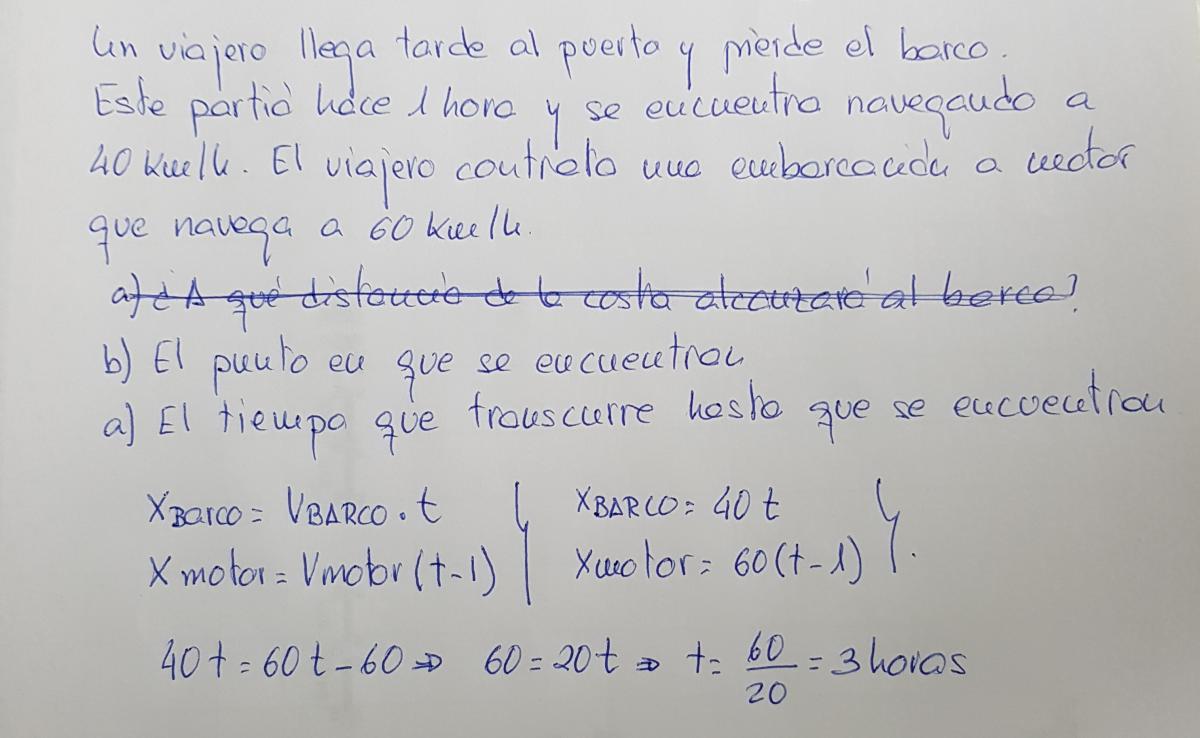 Un viajero llega tarde al puerto y pierde el barco.
Este partió hace 1 hora y se encuentra navegando a
40 km/h. El viajero contrata una embarcación a motor
que navega a 60 km/h.
a) ¿A qué distancia de la costa alcanzará al barco?
b) El punto en que se encuentran
a) El tiempo que transcurre hasta que se encuentran
XBarco = VBARCO · t } XBARCO = 40 t }
X motor = Vmotor (t - 1) Xmotor = 60 (t - 1) .
40 t = 60 t - 60 ⇒ 60 = 20 t ⇒ t = 60/20 = 3 horas